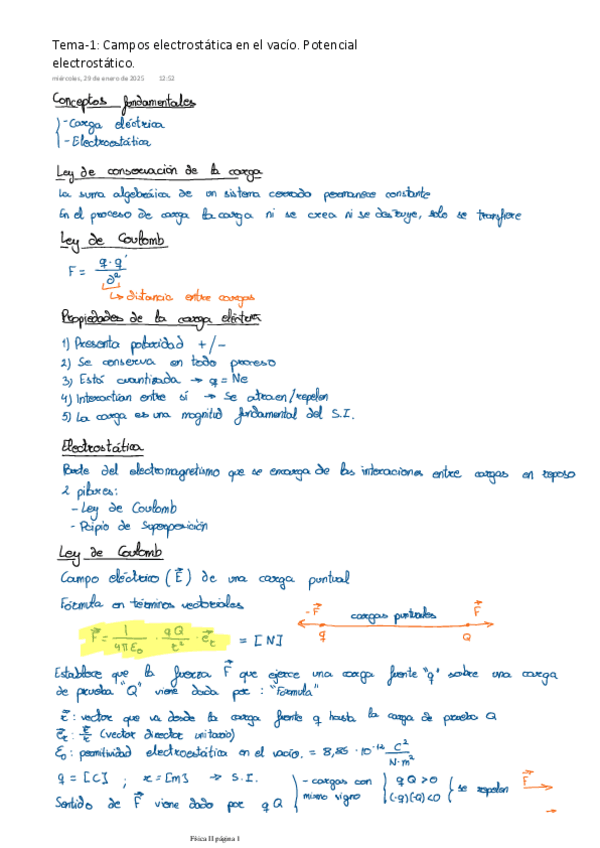 Tema-1: Campos electrostática en el vacío. Potencial
electrostático.
miércoles, 29 de enero de 2025 12:52
Conceptos fundamentales
- Carga eléctrica
- Electroestática
Ley de conservación de la carga
La suma algebraica de un sistema cerrado permanece constante
En el proceso de carga la carga ni se crea ni se destruye, solo se transfiere
Ley de Coulomb
F = q · q' / d²
↳ distancia entre cargas
Propiedades de la carga eléctrica
1) Presenta polaridad + / -
2) Se conserva en todo proceso
3) Está cuantizada → q = Ne
4) Interactúan entre sí → Se atraen/repelen
5) La carga es una magnitud fundamental del S.I.
Electrostática
Parte del electromagnetismo que se encarga de las interaciones entre cargas en reposo
2 pilares:
- Ley de Coulomb
- Pcipio de Superposición
Ley de Coulomb
Campo eléctrico (E⃗) de una carga puntual
Fórmula en términos vectoriales
F⃗ = 1/4πε₀ · qQ/r² · e⃗r = [N]
-F⃗ cargas puntuales F⃗
q Q
Establece que la fuerza F⃗ que ejerce una carga fuente "q" sobre una carga
de prueba "Q" viene dada por: "Fórmula"
r⃗: vector que va desde la carga fuente q hasta la carga de prueba Q
e⃗r: r⃗/r (vector director unitario)
ε₀: permitividad electrostática en el vacío. = 8,85 · 10⁻¹² C²/N·m²
q = [C] ; r = [m] → S.I.
Sentido de F⃗ viene dado por qQ
- cargas con
mismo signo
qQ>0
(-q)(-Q)<0
se repelen
F⃗
Física II página 1